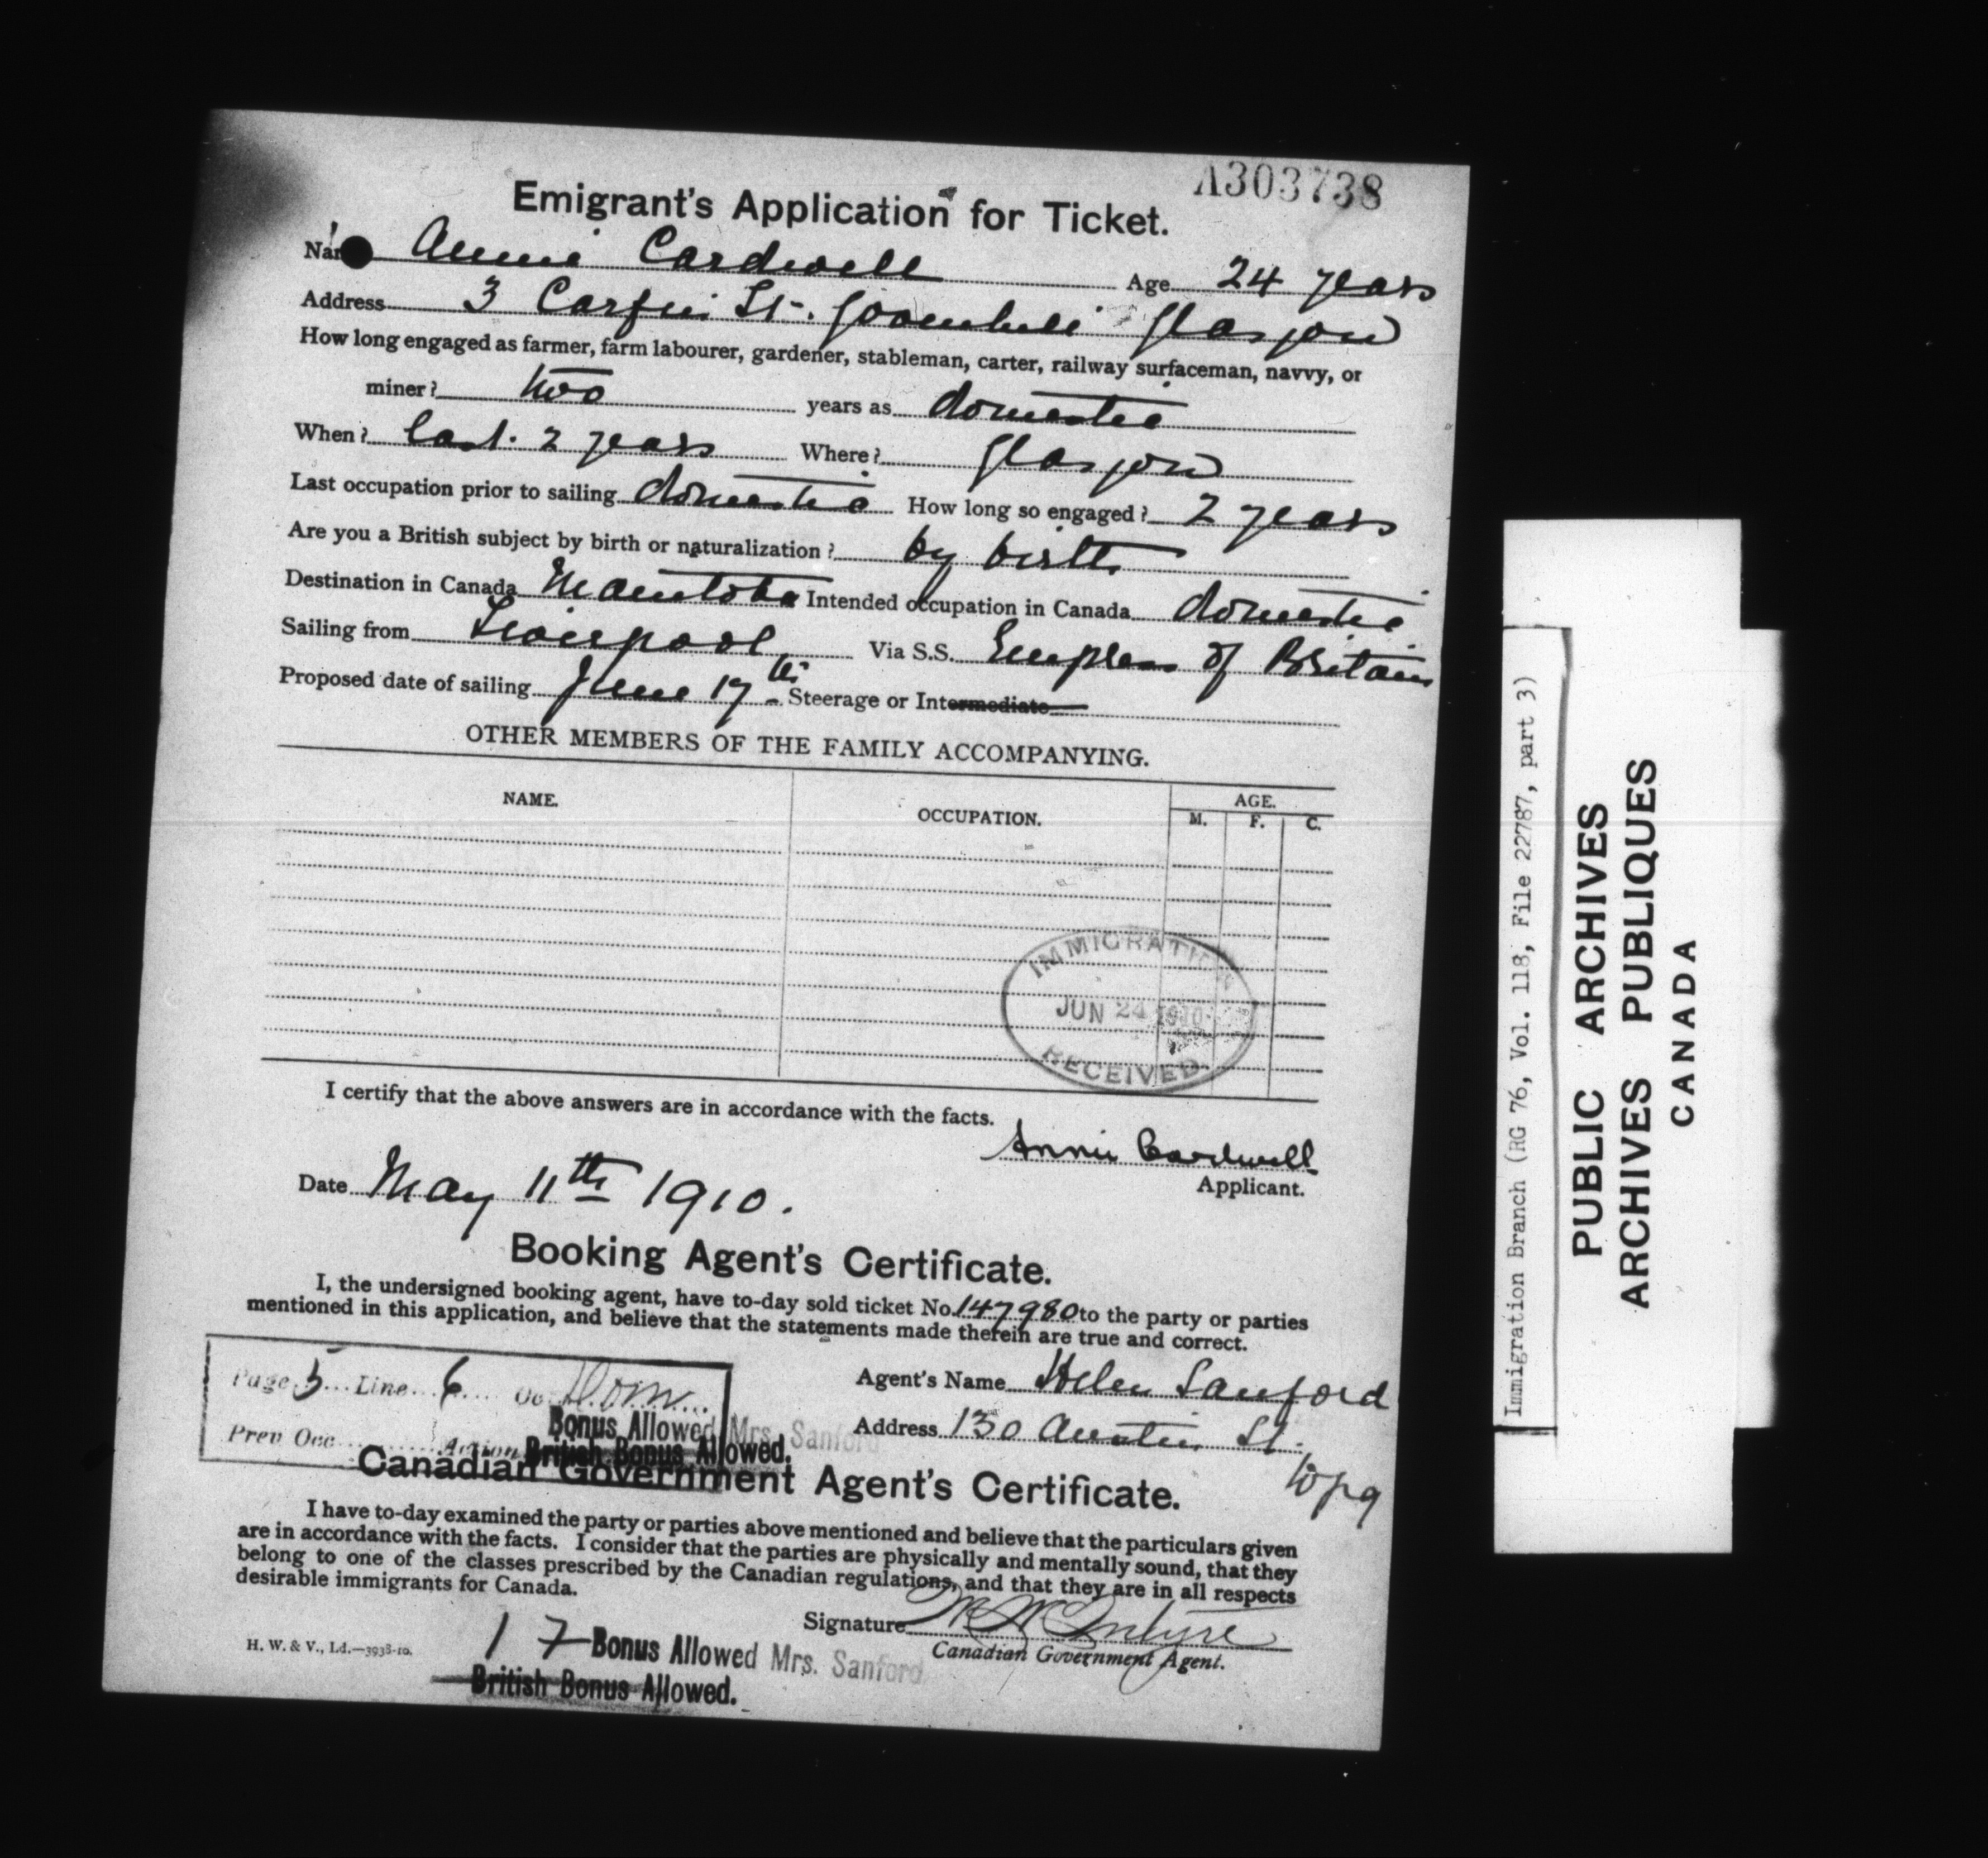 A303738
Emigrant's Application for Ticket.
Name Annie Cardwell Age 24 years
Address 3 Carfin St. Govanhill Glasgow
How long engaged as farmer, farm labourer, gardener, stableman, carter, railway surfaceman, navvy, or
miner? two years as domestic
When? last 2 years Where? Glasgow
Last occupation prior to sailing domestic How long so engaged? 2 years
Are you a British subject by birth or naturalization? by birth
Destination in Canada Manitoba Intended occupation in Canada domestic
Sailing from Liverpool Via S.S. Empress of Britain
Proposed date of sailing June 17th Steerage or Intermediate
OTHER MEMBERS OF THE FAMILY ACCOMPANYING.
NAME. OCCUPATION. AGE.
M. F. C.
IMMIGRATION
JUN 24 1910
RECEIVED
I certify that the above answers are in accordance with the facts.
Annie Cardwell
Applicant.
Date May 11th 1910.
Booking Agent's Certificate.
I, the undersigned booking agent, have to-day sold ticket No. 147980 to the party or parties
mentioned in this application, and believe that the statements made therein are true and correct.
Page 5 Line 6 Oc Dom.
Prev Occ Action
Bonus Allowed Mrs. Sanford
British Bonus Allowed.
Agent's Name Helen Sanford
Address 130 Austin St.
Wpg
Canadian Government Agent's Certificate.
I have to-day examined the party or parties above mentioned and believe that the particulars given
are in accordance with the facts. I consider that the parties are physically and mentally sound, that they
belong to one of the classes prescribed by the Canadian regulations, and that they are in all respects
desirable immigrants for Canada.
Signature
Canadian Government Agent.
H. W. & V., Ld.—3938-10.
17 Bonus Allowed Mrs. Sanford
British Bonus Allowed.
Immigration Branch (RG 76, Vol. 118, File 22787, part 3)
PUBLIC ARCHIVES
ARCHIVES PUBLIQUES
CANADA